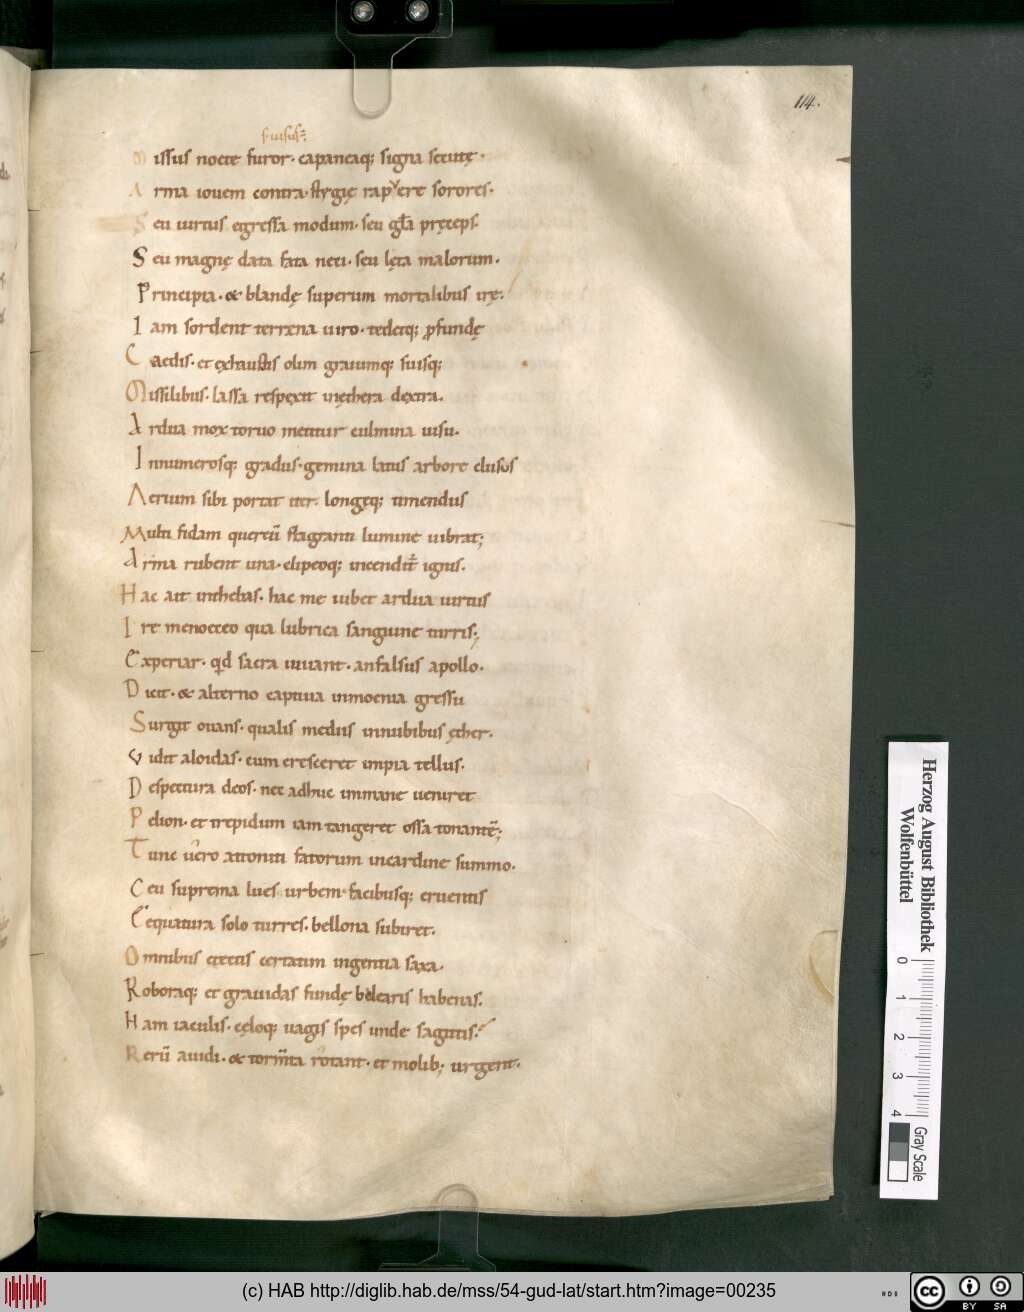 114.
s. uisus
Missus nocte furor. capaneaq; signa secutę.
Arma iouem contra. stygię rapyere sorores.
Seu uirtus egressa modum. seu gła pręceps.
Seu magnę data fata neci. seu lęta malorum.
Principia. & blandę superum mortalibus irę.
Iam sordent terrena uiro. tedetq; ꝓfundę
Caedis. et exhaustis olim graiumq; suisq;
Missilibus. lassa respexit inęthera dextra.
Ardua mox toruo metitur culmina uisu.
Innumerosq; gradus. gemina latus arbore clusos
Aerium sibi portat iter. longeq; timendus
Multi fidam quercū flagranti lumine uibrat;
Arma rubent una. clipeoq; incendit̄ ignis.
Hac ait inthebas. hac me iubet ardua uirtus
Ire menoeceo qua lubrica sanguine turris;
Experiar. qd sacra iuuant. anfalsus apollo.
Dicit. & alterno captiua inmoenia gressu
Surgit ouans. qualis mediis innubibus ęther.
Vidit aloidas. cum cresceret impia tellus.
Despectura deos. nec adhuc immane ueniret
Pelion. et trepidum iam tangeret ossa tonantē;
Tunc uero attoniti fatorum incardine summo.
Ceu suprema lues urbem facibusq; cruentis
Eequatura solo turres. bellona subiret.
Omnibus etectis certatim ingentia saxa.
Roboraq; et grauidas fundę balearis habenas.
Nam iaculis. cęloq; uagis spes unde sagittis.
Uerū auidi. & torm̄ta rotant. et molib; urgent.
Herzog August Bibliothek
Wolfenbüttel
0 1 2 3 4
Gray Scale
(c) HAB http://diglib.hab.de/mss/54-gud-lat/start.htm?image=00235
cc BY SA